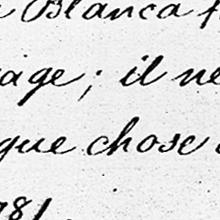 Blanca f
age ; il ne
que chose
781